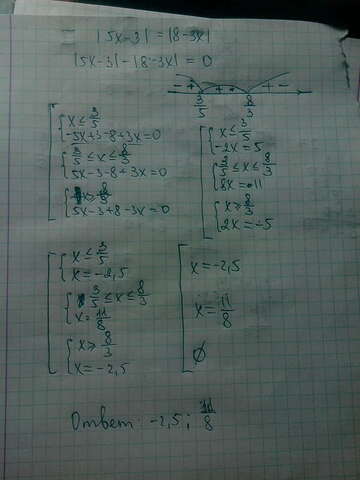 |5x-3| = |8-3x|
|5x-3|-|8-3x| = 0
- + + + + -
3/5 8/3
[ { x ≤ 3/5
-5x+3-8+3x=0
{ 3/5 ≤ x ≤ 8/3
5x-3-8+3x=0
{ x ≥ 8/3
5x-3+8-3x=0
[ { x ≤ 3/5
-2x = 5
{ 3/5 ≤ x ≤ 8/3
8x = 11
{ x ≥ 8/3
2x = -5
[ { x ≤ 3/5
x = -2,5
{ 3/5 ≤ x ≤ 8/3
x = 11/8
{ x ≥ 8/3
x = -2,5
[ x = -2,5
x = 11/8
∅
Ответ: -2,5; 11/8